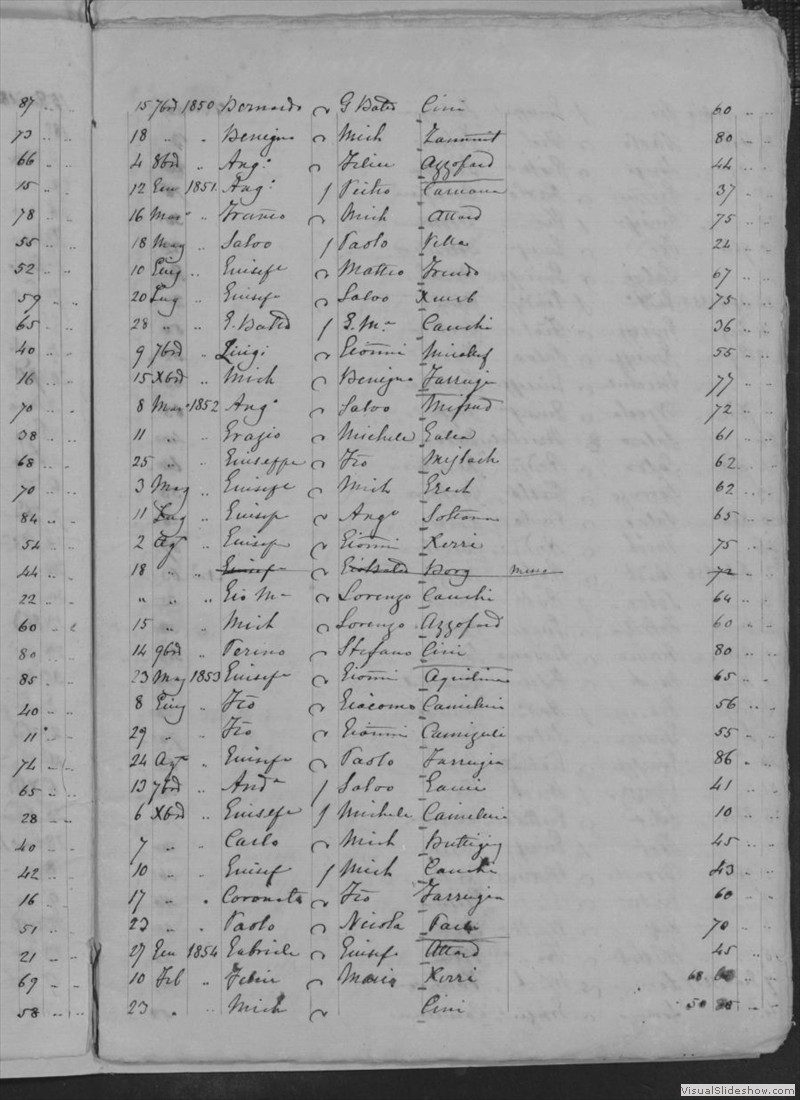 87 15 7bre 1850 Bernardo G Batta Cini 60
73 18 " " Benigno Mich Zammit 80
66 4 8bre " Ang. Felice Azzopard 44
15 12 Gen 1851 Ang. Pietro Caruana 37
78 16 Mar " Franco Mich Attard 75
55 18 Mag " Salvo Paolo Vella 24
52 10 Giug " Giusepe Matteo Frendo 67
59 20 Lug " Giusep Salvo Xuereb 75
65 28 " " G. Batta G. Ma Cauchi 36
40 9 7bre " Luigi Gioanni Micalef 55
16 15 Xbre " Mich Benigno Farrugia 77
70 8 Mar 1852 Ang. Salvo Mifsud 72
38 11 " " Grazio Michele Galea 61
68 25 " " Giuseppe Fco Mejlach 62
70 3 Mag " Giusepe Mich Grech 62
84 11 Lug " Giusep Ango Sultana 65
54 2 Agt " Giusep Gioanni Xerri 75
44 18 " " Giusep Gio Batta Borg 72
22 " " " Gio M. Lorenzo Cauchi 64
60 15 " " Mich Lorenzo Azzopard 60
80 14 9bre " Perino Stefano Cini 80
85 23 Mag 1853 Giusep Gioanni Aquilina 65
40 8 Giug " Fco Giacomo Camilleri 56
11 29 " Fco Gioanni 55
74 24 Agt " Giusepe Paolo Farrugia 86
65 13 7bre " Anda Salvo 41
28 6 Xbre " Giusepe Michele Camilleri 10
40 7 " " Carlo Mich Buttigieg 45
42 10 " " Giusep Mich Cauchi 43
16 17 " " Coronato Fco Farrugia 60
51 23 " " Paolo Nicola Pace 70
21 27 Gen 1854 Gabriele Giusepe Attard 45
69 10 Feb " Felice Mario Xerri 68
58 23 " " Mich Cini 50
VisualSlideshow.com